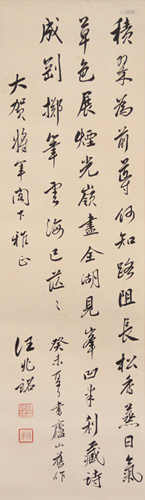 積翠為前導何知路阻長松香蒸日氣
草色展煙光嶺盡全湖見峯回半剎藏詩
成剛擲筆雲海已茫〻
癸未夏書廬山舊作
大賀將軍閣下雅正
汪兆銘